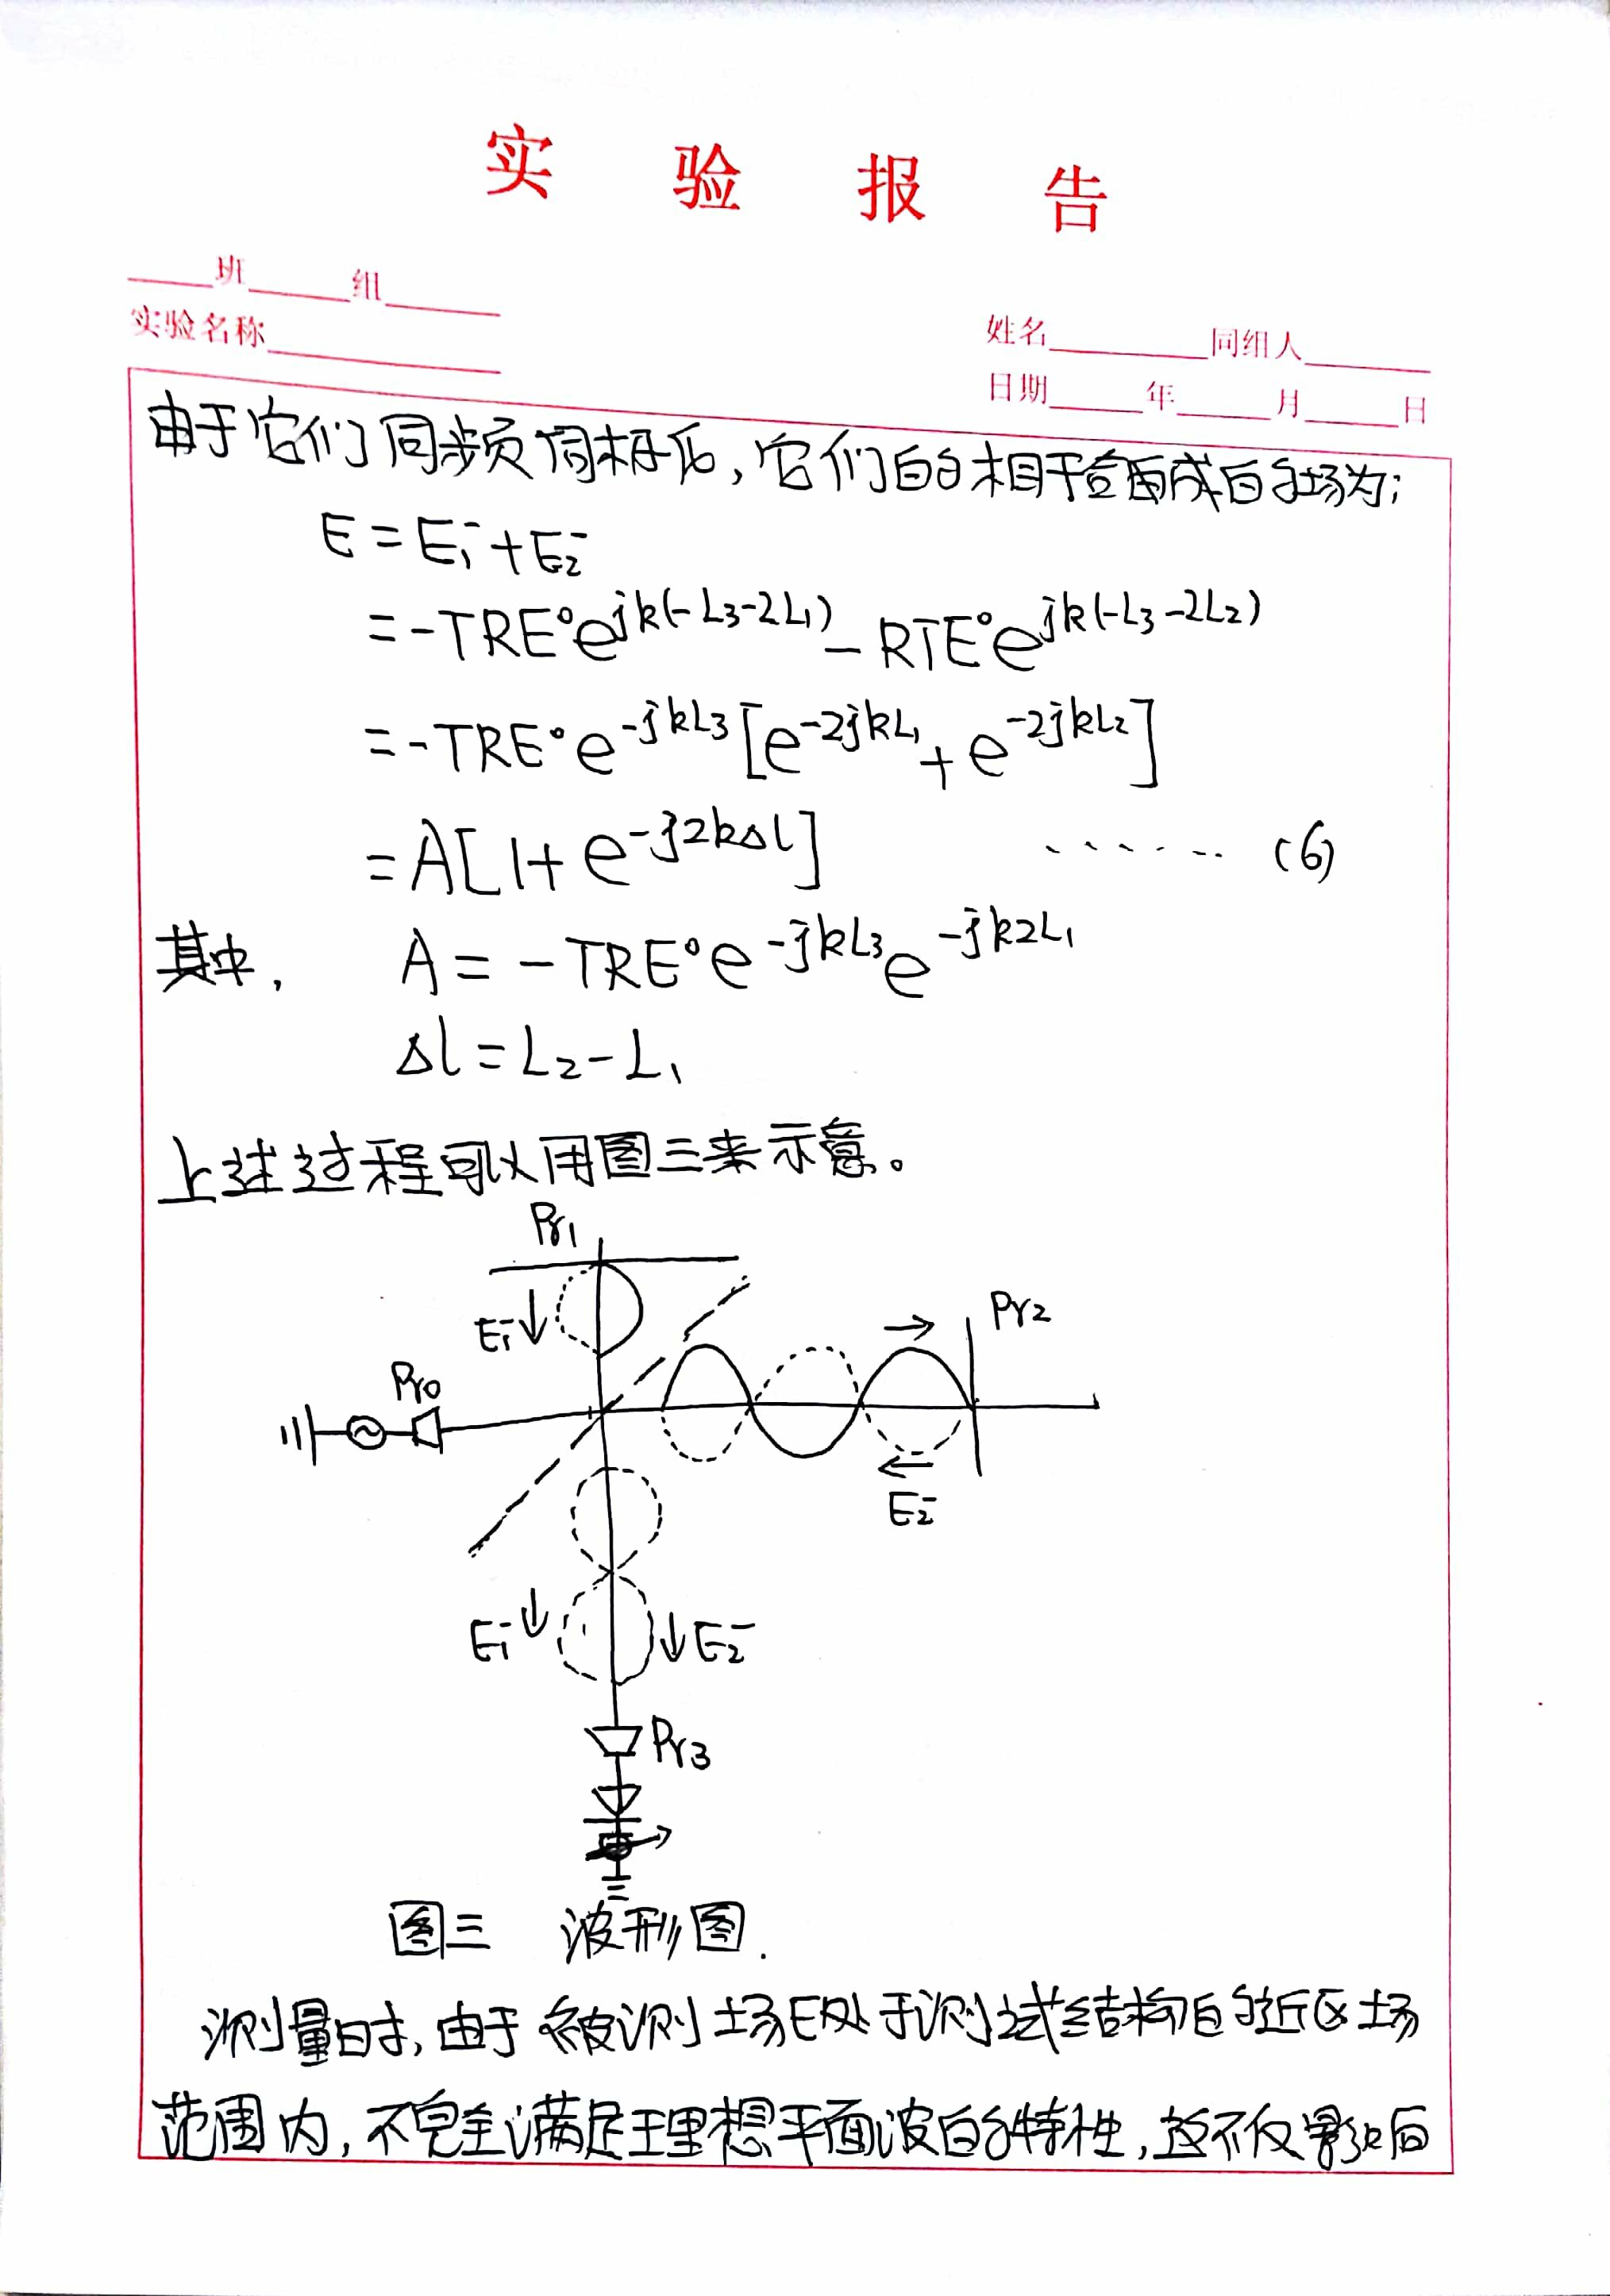 实验报告
____班______组______
实验名称____________
姓名________同组人______
日期_____年_____月_____日
由于它们同步频同相化,它们的相干叠加成的场为:
E = E₁⁻ + E₂⁻
= -TRE°e^{jk(-L₃-2L₁)} - RTE°e^{jk(-L₃-2L₂)}
= -TRE°e^{-jkL₃}[e^{-2jkL₁} + e^{-2jkL₂}]
= A[1+e^{-j2kΔl}] ······ (6)
其中, A = -TRE°e^{-jkL₃}e^{-jk2L₁}
Δl = L₂-L₁
上述过程可以用图三来示意。
Pr1
E₁⁻
Pr2
Pr0
E₂⁻
E₁⁻ E₂⁻
Pr3
图三 波形图.
测量时,由于被测场E处于测试结构的近区场
范围内,不完全满足理想平面波的特性,这不仅影响